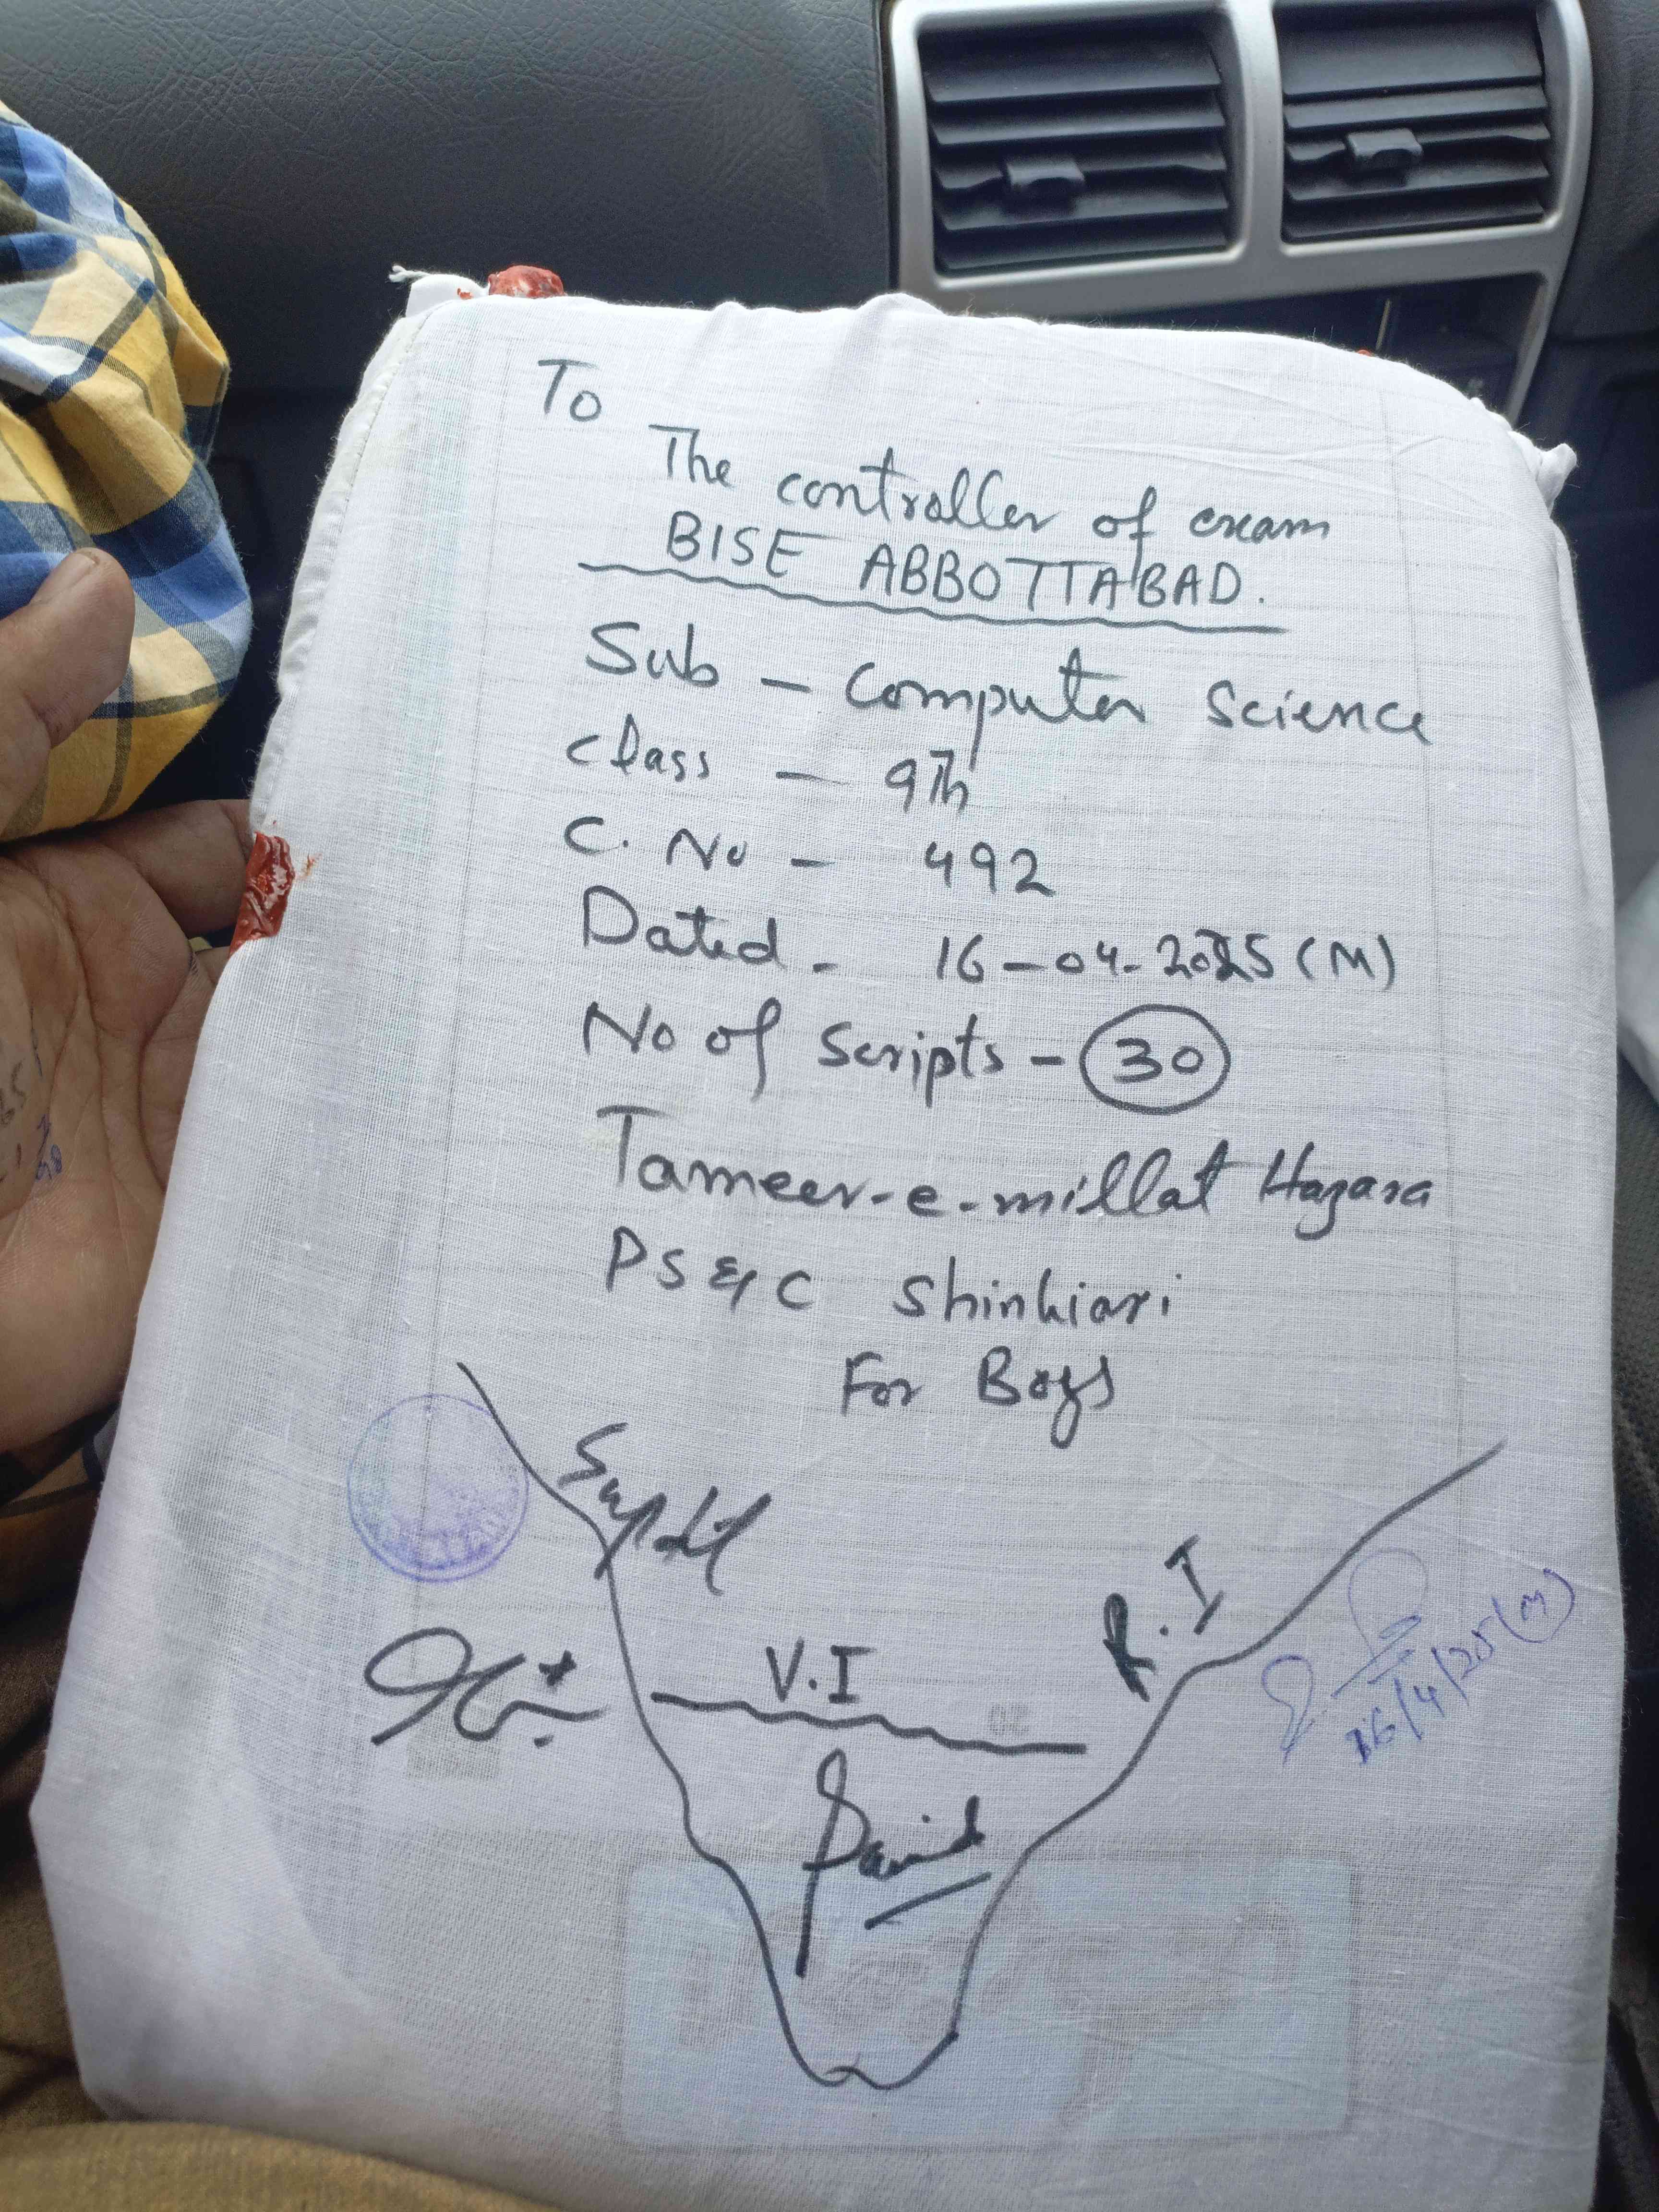 To
The controller of exam
BISE ABBOTTABAD.
Sub - Computer Science
class - 9th
C. No - 492
Dated - 16-04-2025 (M)
No of Scripts - 30
Tameer-e-millat Hazara
PS & C Shinkiari
For Boys
Supdt
R.I
V.I
16/4/25 (M)